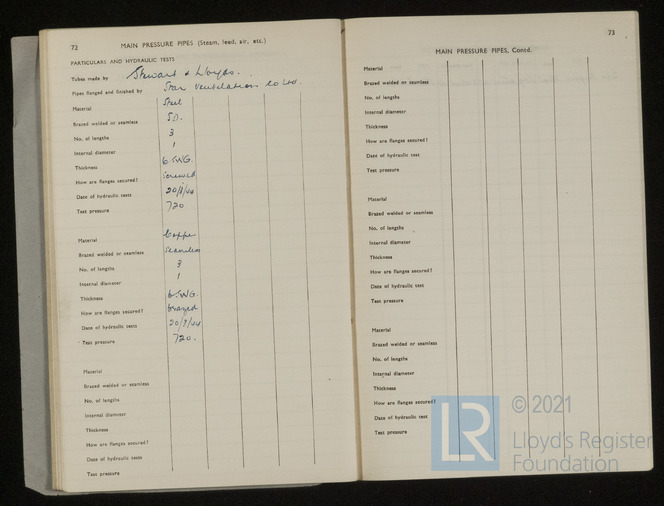 72 MAIN PRESSURE PIPES (Steam, feed, air, etc.)
PARTICULARS AND HYDRAULIC TESTS
Tubes made by Stewart & Lloyds.
Pipes flanged and finished by Star Ventilation Co Ltd.
Material Steel
Brazed welded or seamless S.D.
No. of lengths 3
Internal diameter 1
Thickness 6 SWG.
How are flanges secured? Screwed
Date of hydraulic tests 20/9/44
Test pressure 720
Material Copper
Brazed welded or seamless Seamless
No. of lengths 3
Internal diameter 1
Thickness 6 SWG.
How are flanges secured? brazed
Date of hydraulic tests 20/9/44
Test pressure 720.
Material
Brazed welded or seamless
No. of lengths
Internal diameter
Thickness
How are flanges secured?
Date of hydraulic tests
Test pressure
73
MAIN PRESSURE PIPES, Contd.
Material
Brazed welded or seamless
No. of lengths
Internal diameter
Thickness
How are flanges secured?
Date of hydraulic test
Test pressure
Material
Brazed welded or seamless
No. of lengths
Internal diameter
Thickness
How are flanges secured?
Date of hydraulic tests
Test pressure
Material
Brazed welded or seamless
No. of lengths
Internal diameter
Thickness
How are flanges secured?
Date of hydraulic tests
Test pressure
LR
© 2021
Lloyd's Register
Foundation